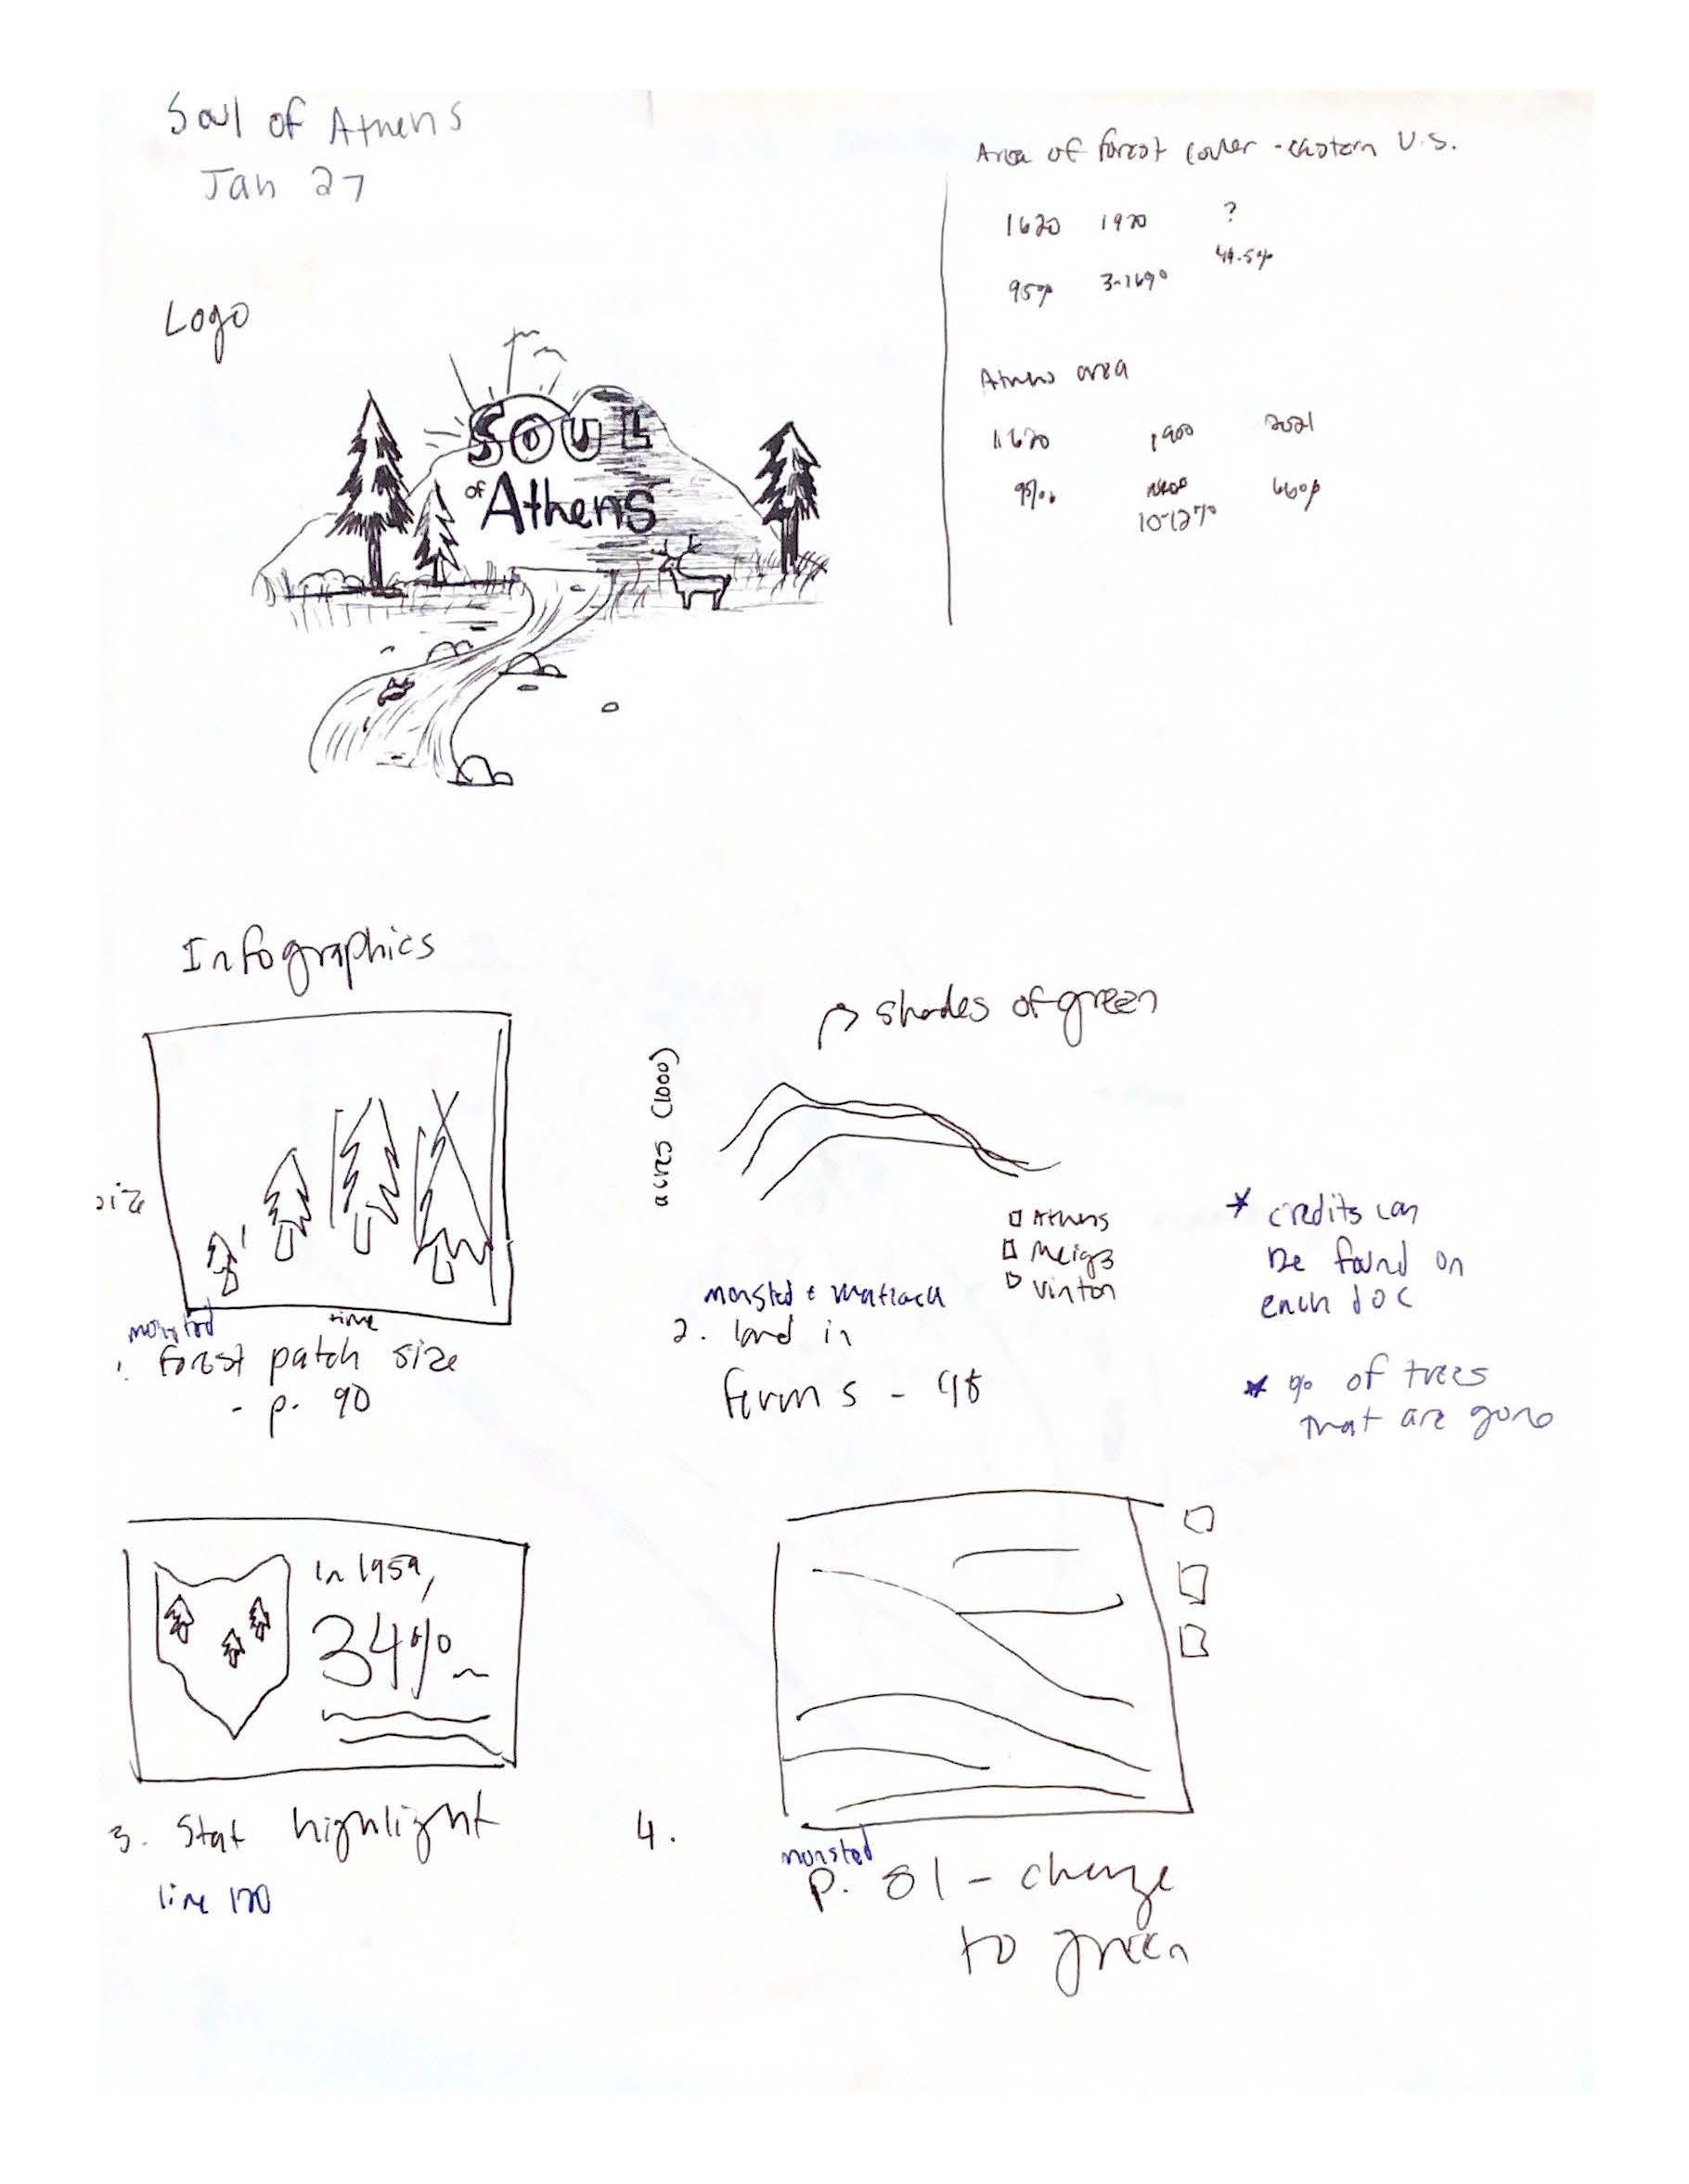 Soul of Athens
Jan 27
Logo
SOUL
of Athens
Area of forest cover - eastern U.S.
1620 1920 ?
95% 3-16% 44.5%
Athens area
1620 1900 2021
95% 10-12% 66%
Infographics
size
time
monsted
1. Forest patch size
- p. 90
shades of green
acres (1000)
Athens
Meigs
Vinton
monsted + matlack
2. land in
farms - 98
* credits can
be found on
each doc
* % of trees
that are gone
In 1959,
34%
3. Stat highlight
line 120
4.
monsted
p. 81 - change
to green